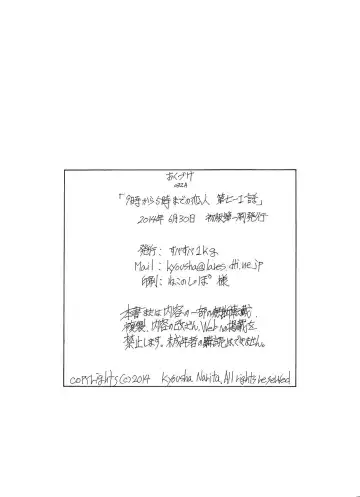 おくづけ
「9時から5時までの恋人 第七-工話」
2014年 6月30日 初版第一刷発行
発行: すべすべ1kg
Mail: kyousha@lares.dti.ne.jp
印刷: ねこのしっぽ 様
本書または内容の一部の無断転載、
複製、内容の改ざん、Webへの掲載を
禁止します。未成年者の購読はできません。
copyrights(c)2014 kyousha. Narita, All rights reserved